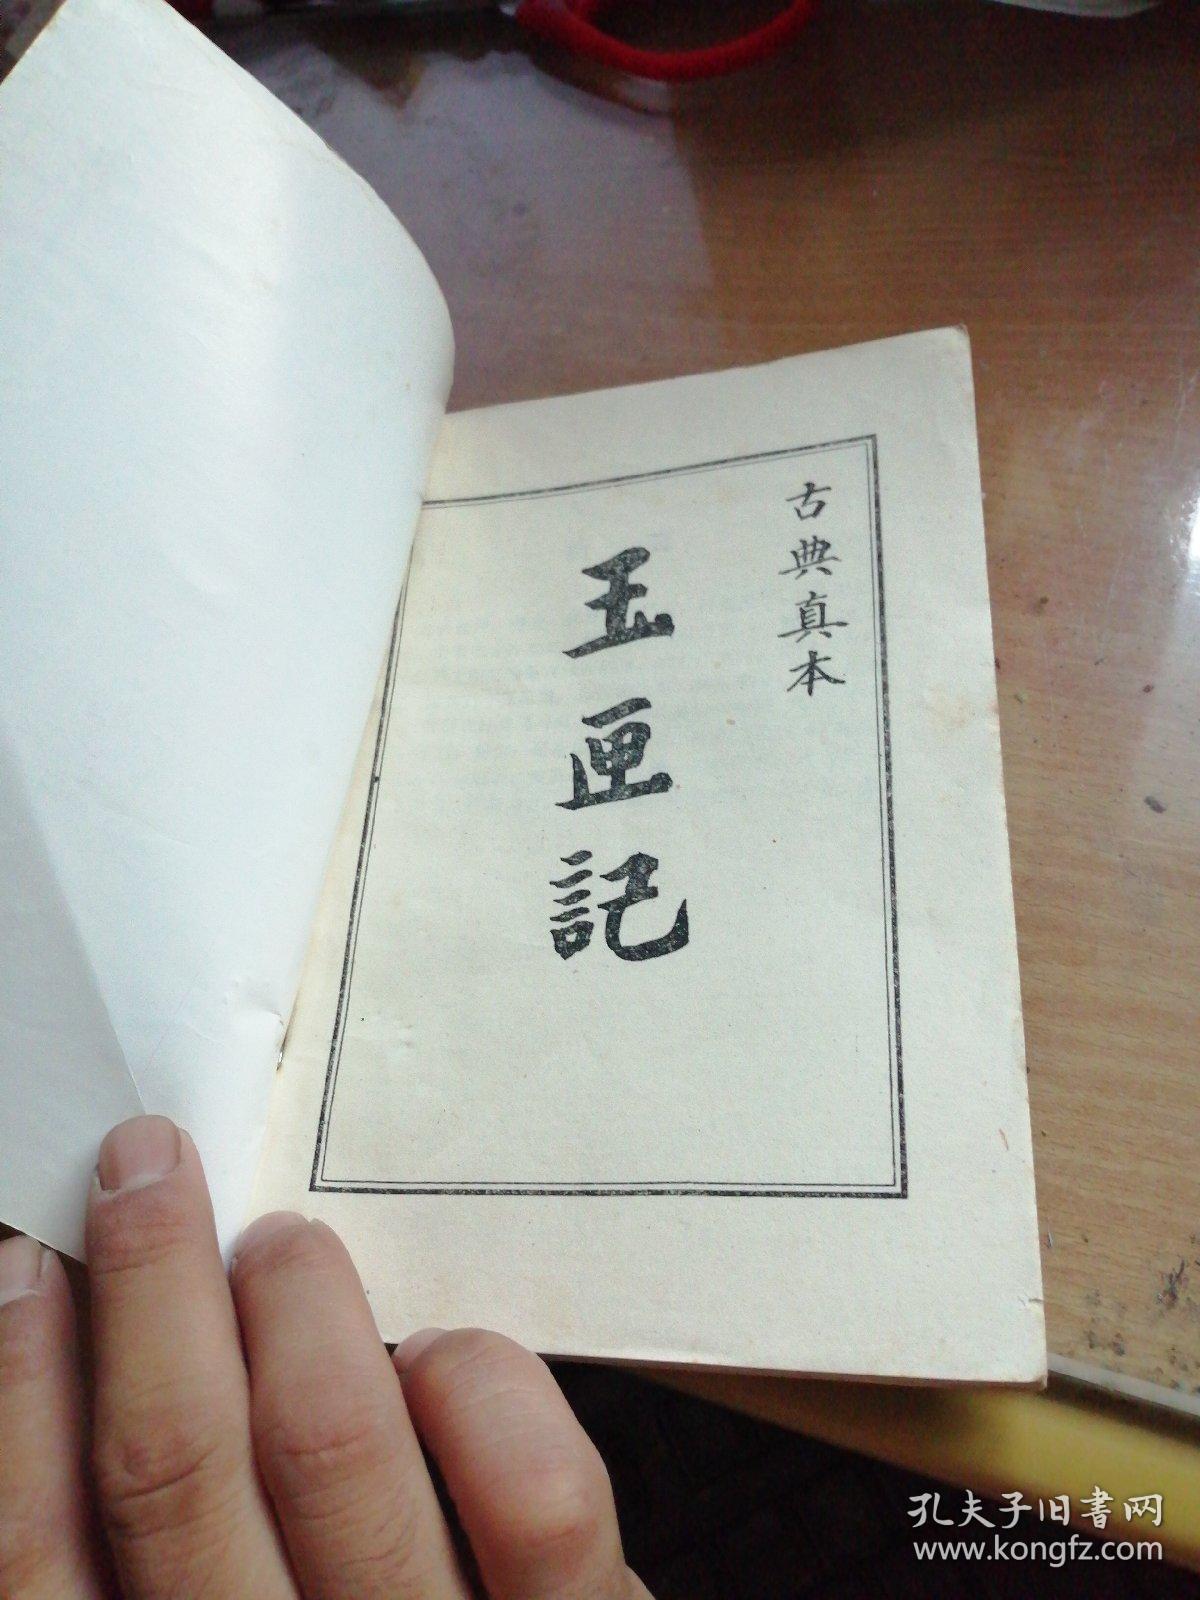 古典真本
玉匣記
孔夫子旧書网
www.kongfz.com